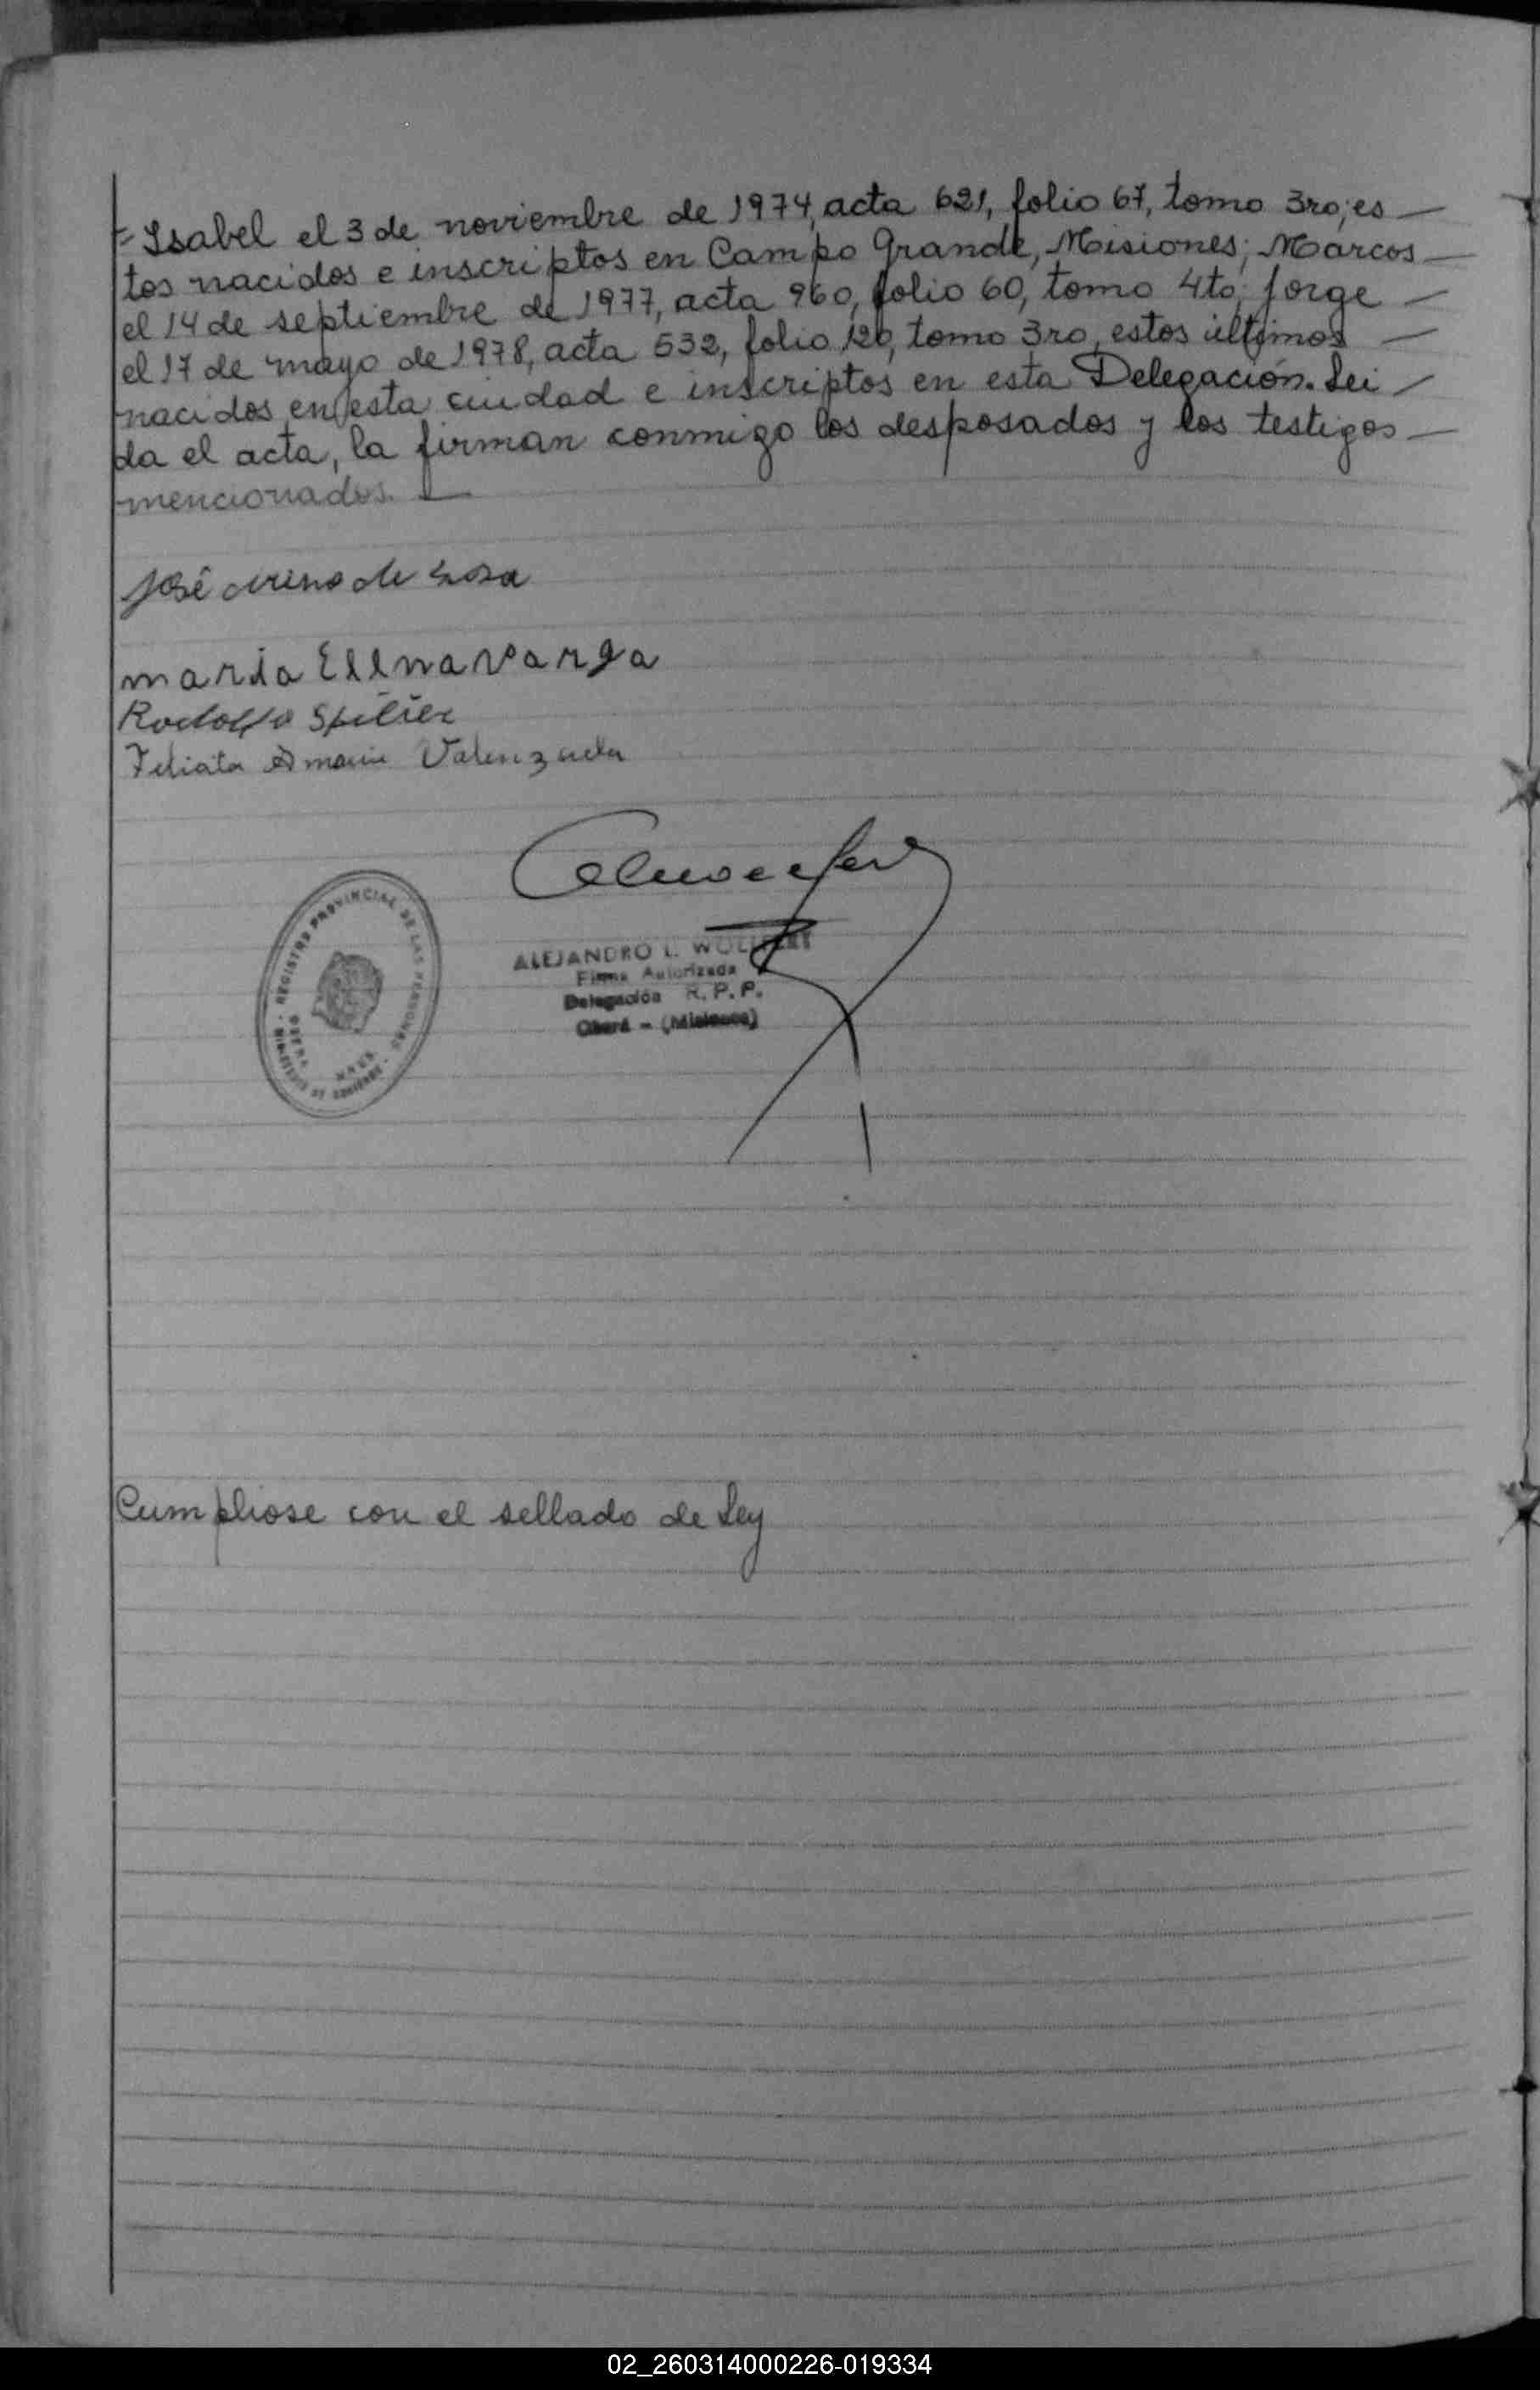 = Isabel el 3 de noviembre de 1974, acta 621, folio 67, tomo 3ro; es —
tos nacidos e inscriptos en Campo Grande, Misiones; Marcos —
el 14 de septiembre de 1977, acta 960, folio 60, tomo 4to; Jorge —
el 17 de mayo de 1978, acta 532, folio 120, tomo 3ro, estos últimos —
nacidos en esta ciudad e inscriptos en esta Delegación. Lei —
da el acta, la firman conmigo los desposados y los testigos —
mencionados. —
José de Sosa
maria Elena Varga
Rodolfo
Amaria Valenzuela
REGISTRO PROVINCIAL DE LAS PERSONAS
OBERA
ALEJANDRO L.
Firma Autorizada
Delegación R. P. P.
Oberá - (Misiones)
Cumpliose con el sellado de Ley
02_260314000226-019334